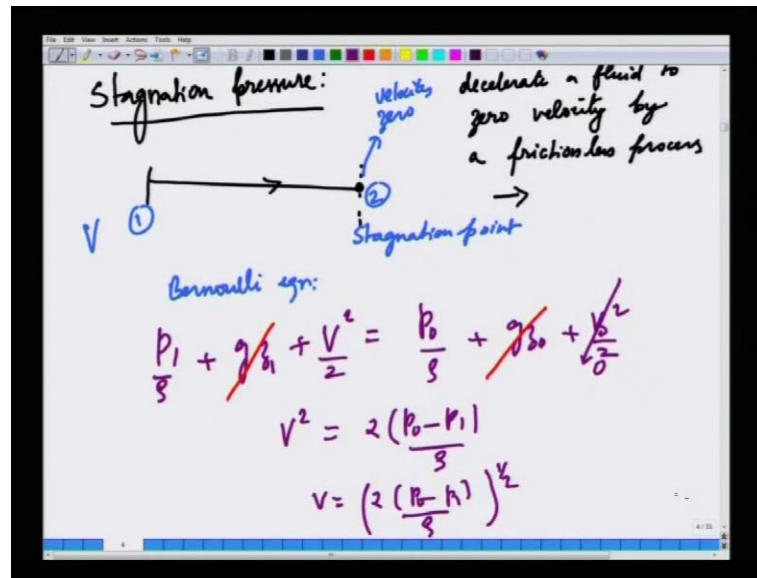 File Edit View Insert Actions Tools Help
Stagnation pressure:
velocity
zero
decelerate a fluid to
zero velocity by
a frictionless process
V
1
2
Stagnation point
Bernoulli eqn:
p₁/ρ + gz₁ + V²/2 = p₀/ρ + gz₀ + V₀²/2 0
V² = 2(p₀-p₁)/ρ
V = (2(p₀-p₁)/ρ)^½
4
4/35